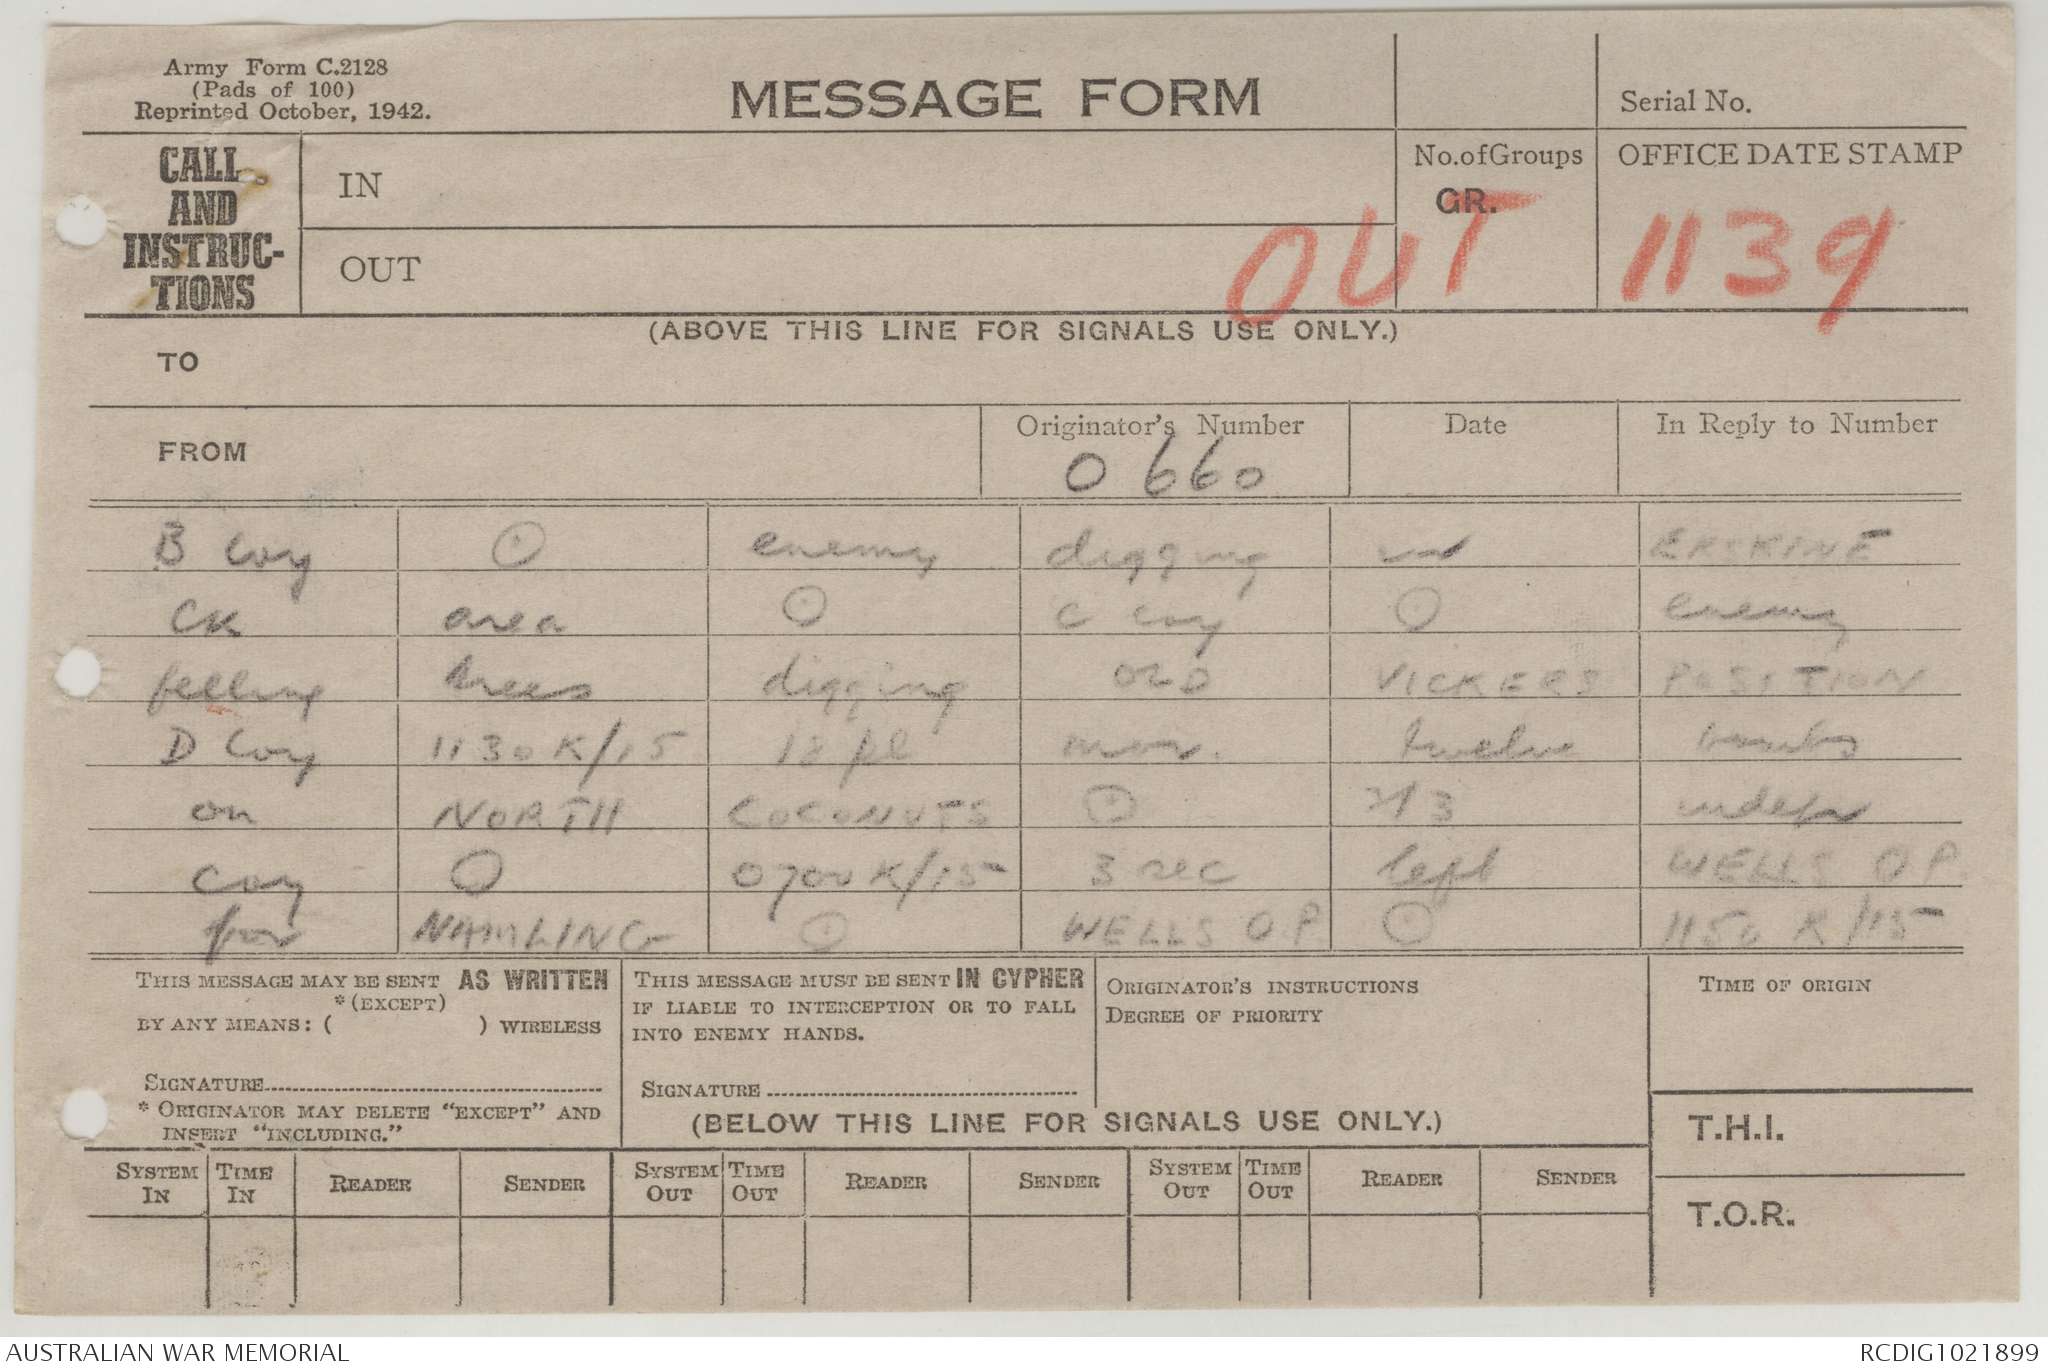 Army Form C.2128
(Pads of 100)
Reprinted October, 1942.
MESSAGE FORM
Serial No.
CALL AND INSTRUC-TIONS
IN
OUT
No. of Groups
GR.
OFFICE DATE STAMP
OUT 1139
(ABOVE THIS LINE FOR SIGNALS USE ONLY.)
TO
FROM
Originator's Number
0 660
Date
In Reply to Number
B Coy ⊙ enemy digging in ERSKINE
CK area ⊙ C Coy ⊙ enemy
felling trees digging OLD VICKERS POSITION
D Coy 1130K/15 18 pl mor. twelve bombs
on NORTH COCONUTS ⊙ 2/3 indep
coy ⊙ 0700K/15 3 sec left WELLS O.P.
for NAMLING ⊙ WELLS O.P ⊙ 1150 K/15
THIS MESSAGE MAY BE SENT AS WRITTEN
*(EXCEPT)
BY ANY MEANS: ( ) WIRELESS
SIGNATURE
* ORIGINATOR MAY DELETE "EXCEPT" AND
INSERT "INCLUDING."
THIS MESSAGE MUST BE SENT IN CYPHER
IF LIABLE TO INTERCEPTION OR TO FALL
INTO ENEMY HANDS.
SIGNATURE
ORIGINATOR'S INSTRUCTIONS
DEGREE OF PRIORITY
TIME OF ORIGIN
(BELOW THIS LINE FOR SIGNALS USE ONLY.)
T.H.I.
T.O.R.
SYSTEM IN TIME IN READER SENDER SYSTEM OUT TIME OUT READER SENDER SYSTEM OUT TIME OUT READER SENDER
AUSTRALIAN WAR MEMORIAL
RCDIG1021899